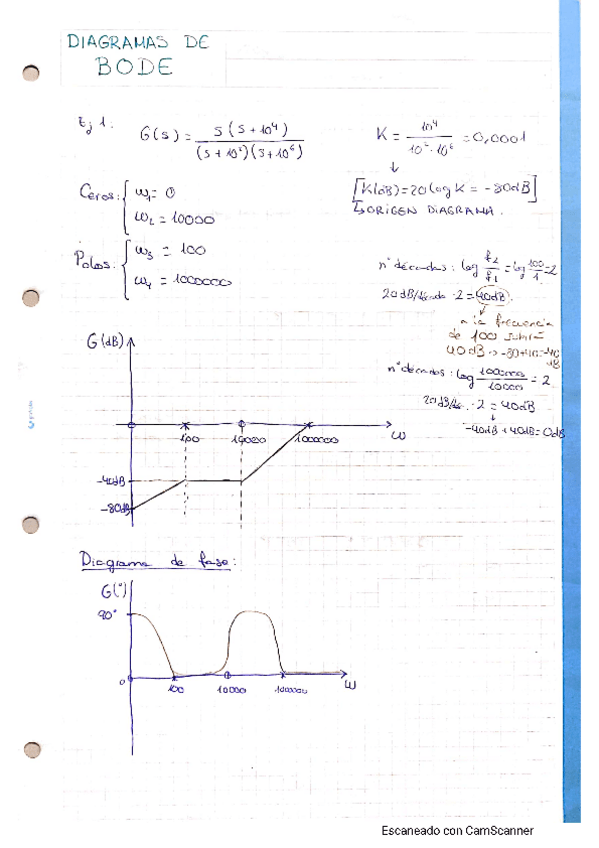 DIAGRAMAS DE
BODE
Ej 1. G(s) = s(s+10⁴) / (s+10²)(s+10⁶)
K = 10⁴ / 10²·10⁶ = 0,0001
↓
[K(dB) = 20 log K = -80dB]
↳ ORIGEN DIAGRAMA.
Ceros: { ω₁ = 0
ω₂ = 10000
Polos: { ω₃ = 100
ω₄ = 1000000
nº décadas: log f₂/f₁ = log 100/1 = 2
20dB/década · 2 = 40dB.
a la frecuencia
de 100 subirá
40dB → -80+40=-40
dB
nº décadas: log 1000000/10000 = 2
20dB/dec. · 2 = 40dB
↓
-40dB+40dB=0dB
G(dB)
100 10000 1000000 ω
-40dB
-80dB
Diagrama de fase:
G(°)
90°
0 100 10000 1000000 ω
Escaneado con CamScanner